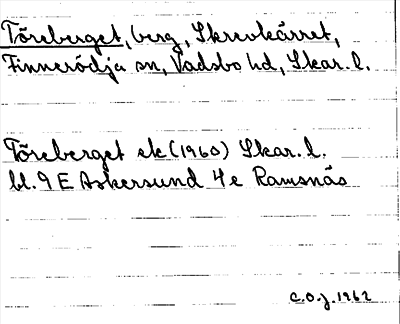 Töreberget, berg, Skrevkärret,
Finnerödja sn, Vadsbo hd, Skar. l.
Töreberget ek (1960) Skar. l.
bl. 9 E Askersund 4 e Ramsnäs
C.O.J. 1962